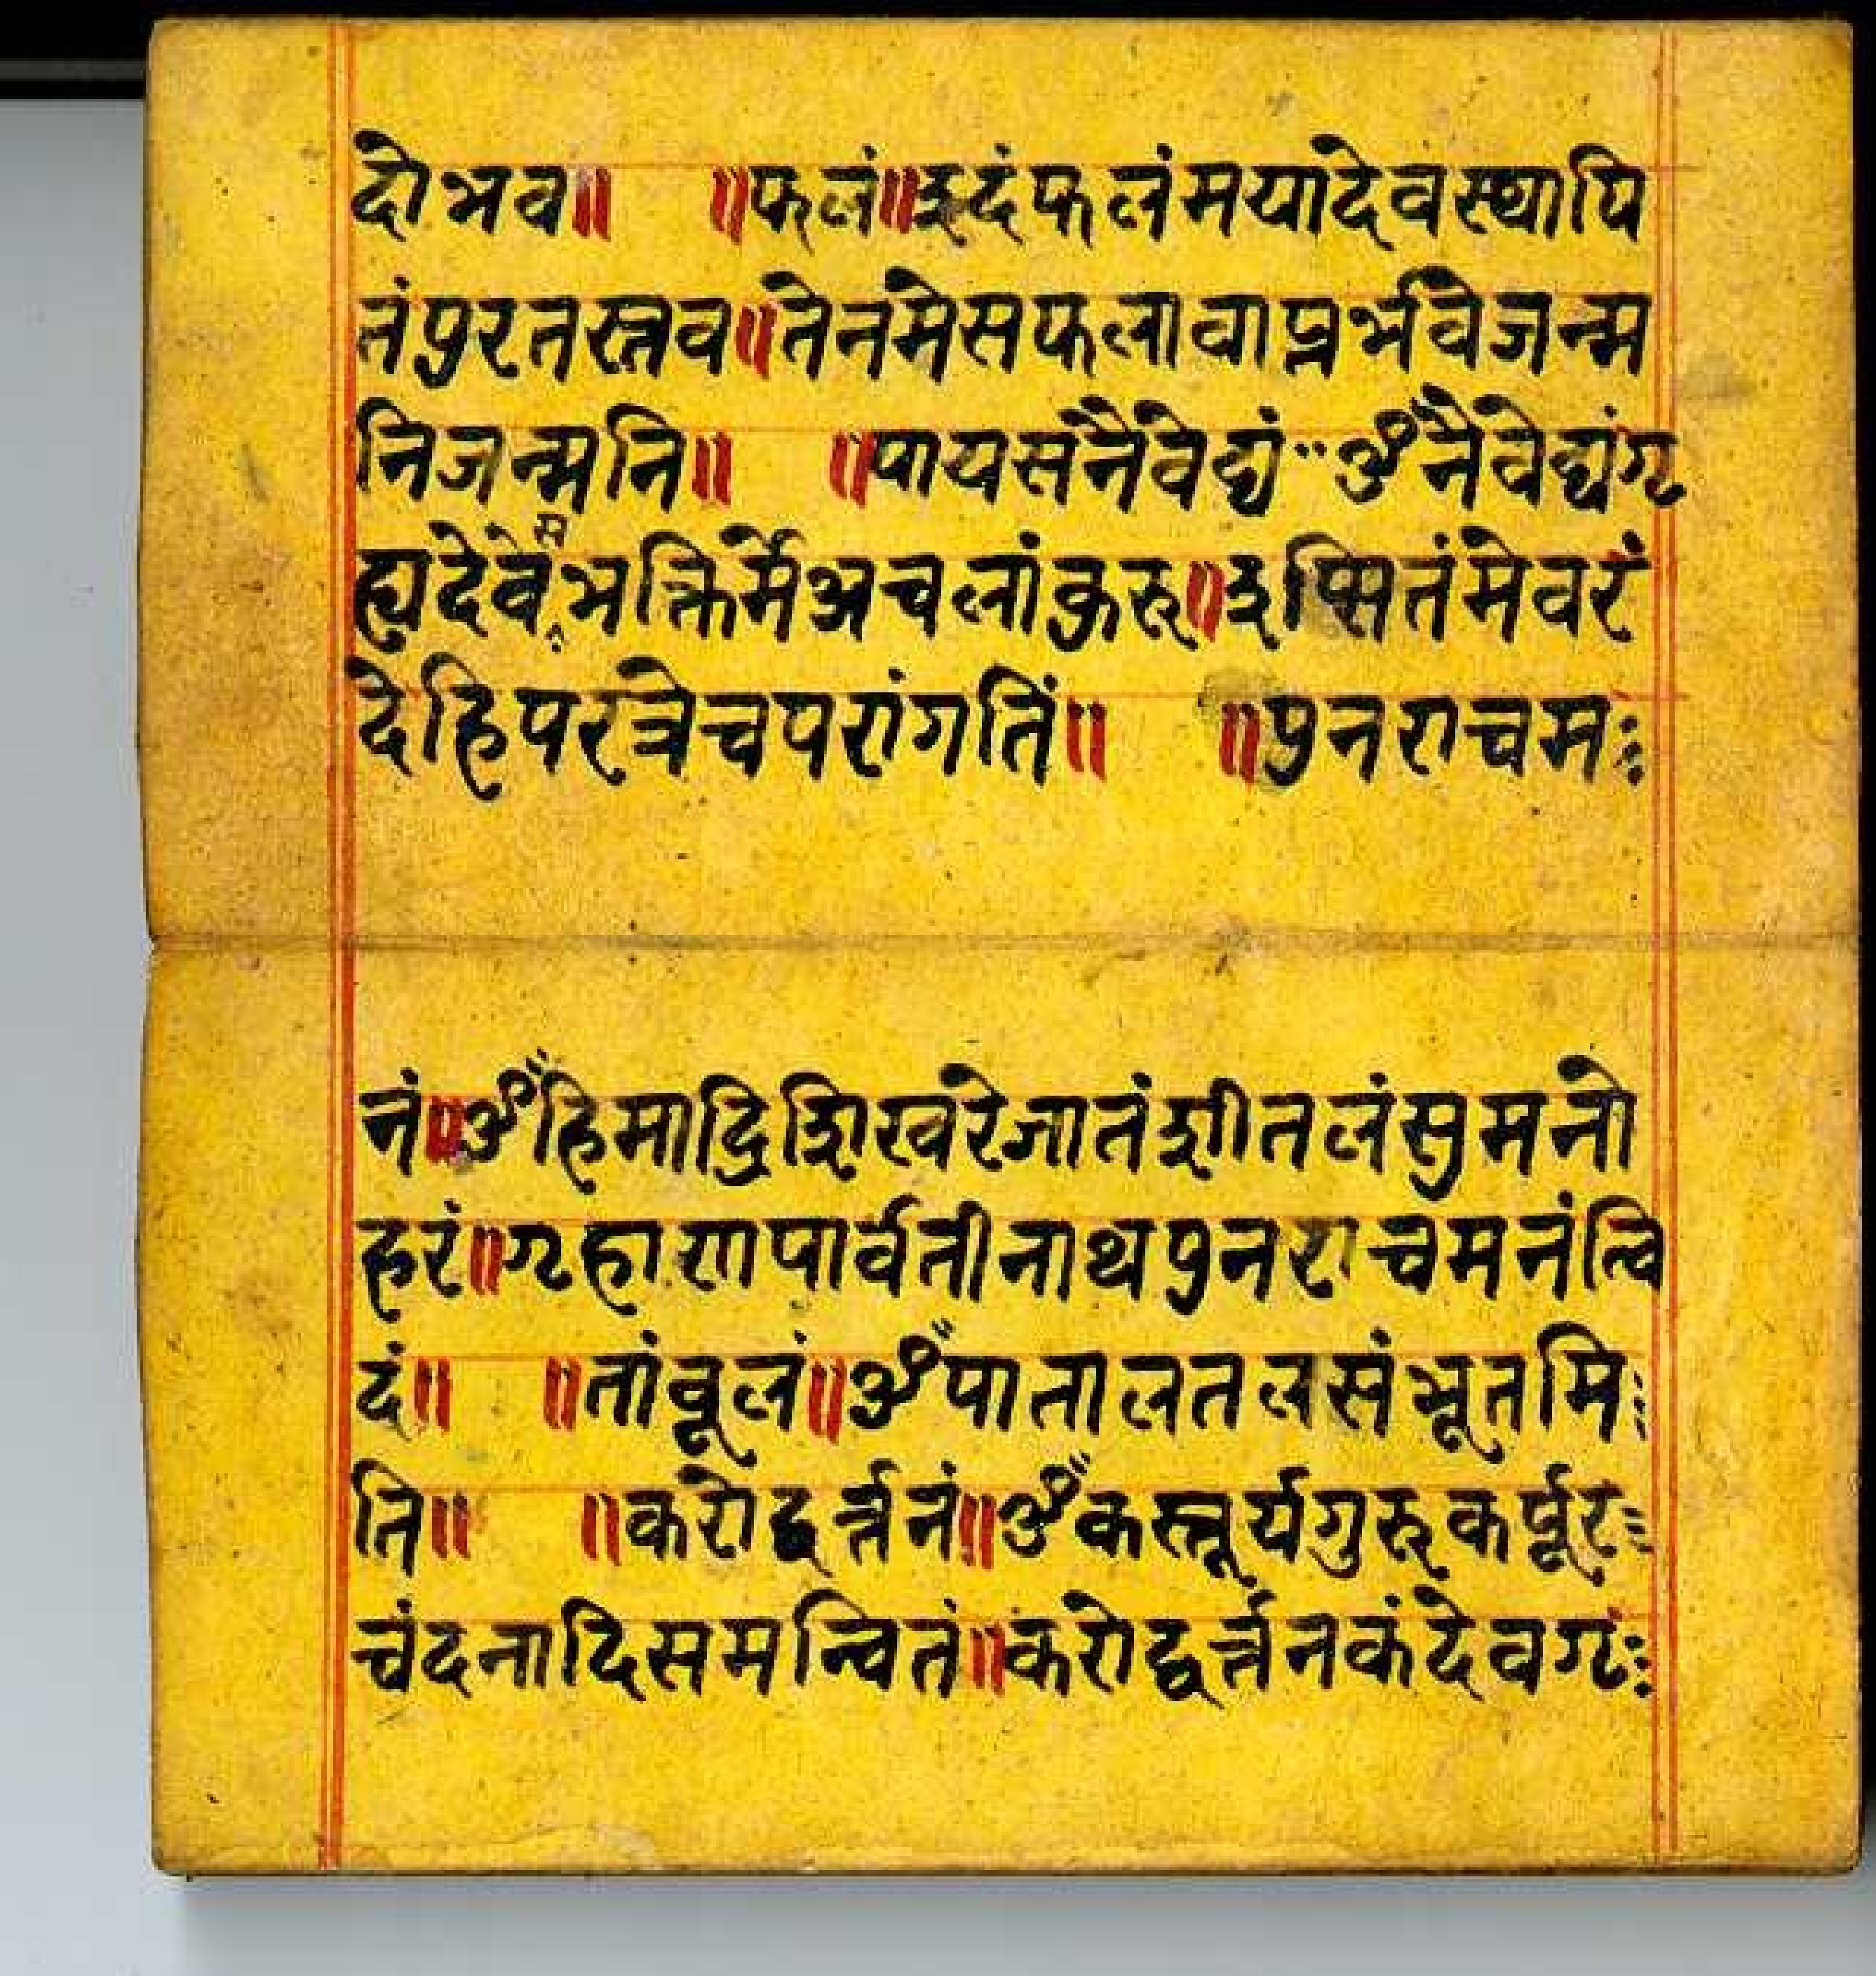 दोभव॥ ॥फलं॥इदंफलंमयादेवस्थापि
तंपुरतस्तव॥तेनमेसफलावाप्नर्भवेजन्म
निजन्मनि॥ ॥पायसंनैवेद्यं॥ॐनैवेद्यंगृ
ह्यदेवेभक्तिर्मेअचलांकुरु॥इप्सितंमेवरं
देहिपरत्रेचपरांगतिं॥ ॥पुनराचम
नं॥ॐहिमाद्रिशिखरेजातंशीतलंसुमनो
हरं॥गृहाणपार्वतीनाथपुनराचमनंत्वि
दं॥ ॥तांवूलं॥ॐपातालतलसंभूतमि
ति॥ ॥करोद्वर्त्तनं॥ॐकस्तूर्यगुरुकर्पूर
चंदनादिसमन्वितं॥करोद्वर्त्तनकंदेवगृ